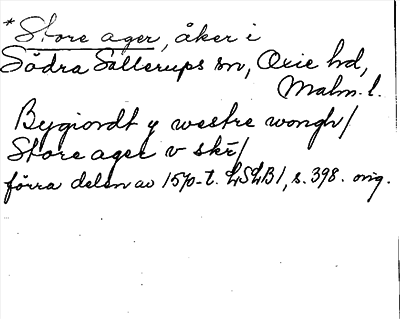 *Store ager, åker i
Södra Sallerups sn, Oxie hd,
Malm. l.
Bygiordt y westre wongh/
Store ager v skē/
förra delen av 1570-t. LSLB1, s. 398. orig.